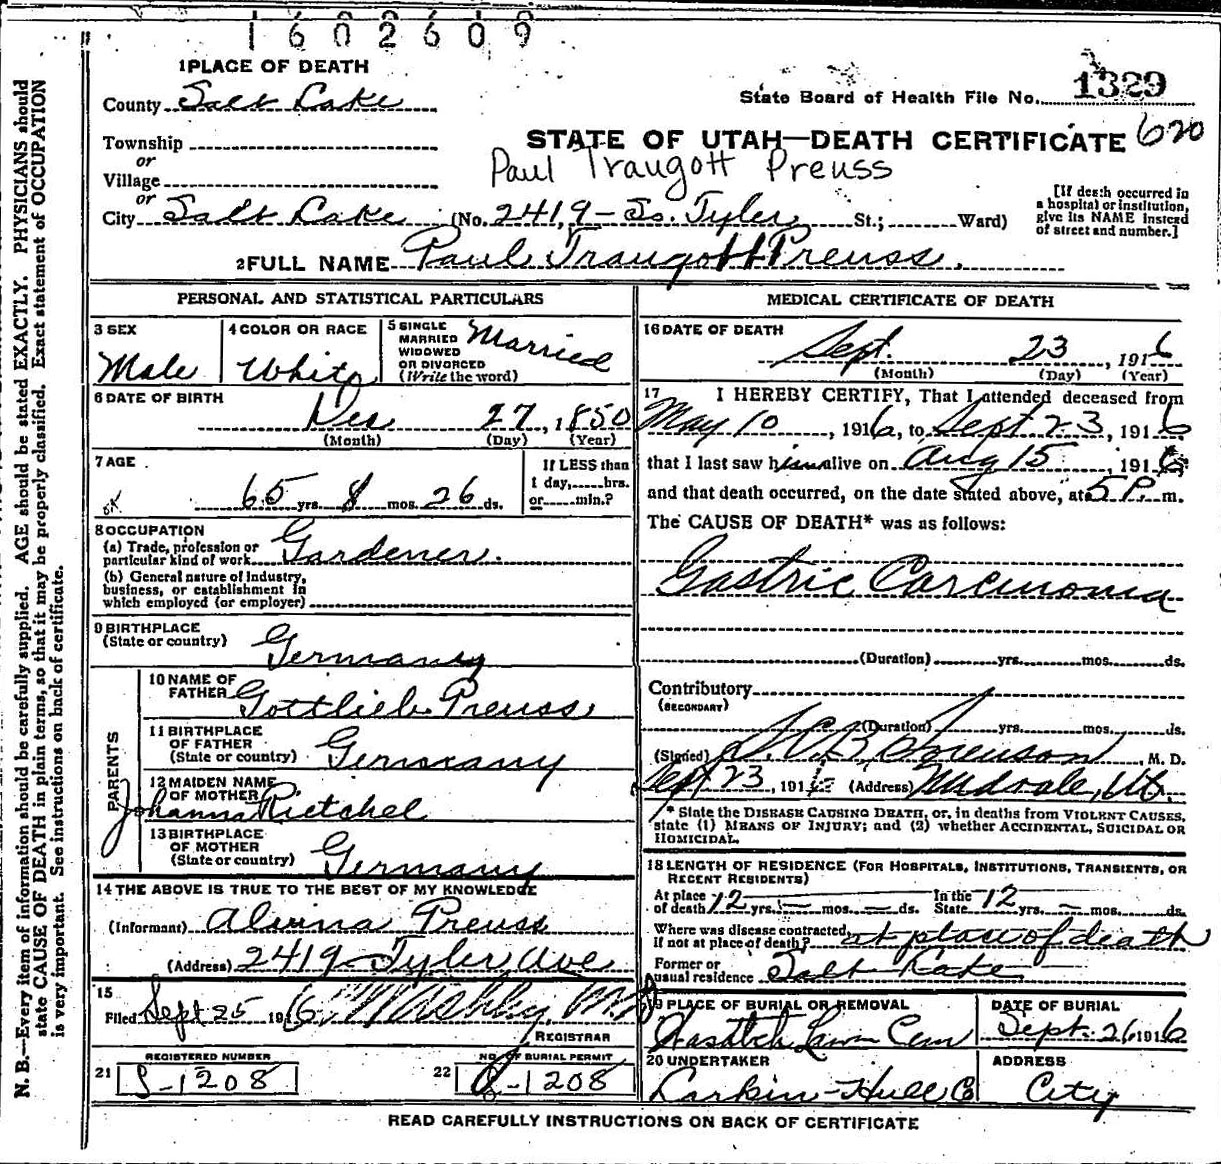 1602609
1 PLACE OF DEATH
County Salt Lake
State Board of Health File No. 1329
Township
or
Village
or
STATE OF UTAH—DEATH CERTIFICATE 620
Paul Traugott Preuss
City Salt Lake (No. 2419 - So. Tyler St.; Ward)
[If death occurred in
a hospital or institution,
give its NAME instead
of street and number.]
2 FULL NAME Paul Traugott Preuss.
PERSONAL AND STATISTICAL PARTICULARS
3 SEX
Male
4 COLOR OR RACE
White
5 SINGLE
MARRIED
WIDOWED
OR DIVORCED
(Write the word)
Married
6 DATE OF BIRTH
Dec 27, 1850
(Month) (Day) (Year)
7 AGE
65 yrs. 8 mos. 26 ds.
If LESS than
1 day, hrs.
or min.?
8 OCCUPATION
(a) Trade, profession or
particular kind of work Gardener.
(b) General nature of Industry,
business, or establishment in
which employed (or employer)
9 BIRTHPLACE
(State or country) Germany
PARENTS
10 NAME OF
FATHER Gottlieb Preuss
11 BIRTHPLACE
OF FATHER
(State or country) Germany
12 MAIDEN NAME
OF MOTHER
Johanna Rietchel
13 BIRTHPLACE
OF MOTHER
(State or country) Germany
14 THE ABOVE IS TRUE TO THE BEST OF MY KNOWLEDGE
(Informant) Alwina Preuss
(Address) 2419 Tyler Ave
15
Filed Sept 25 1916 M.D.
REGISTRAR
REGISTERED NUMBER
21 S-1208
NO. OF BURIAL PERMIT
22 1208
MEDICAL CERTIFICATE OF DEATH
16 DATE OF DEATH
Sept. 23, 1916
(Month) (Day) (Year)
17 I HEREBY CERTIFY, That I attended deceased from
May 10, 1916, to Sept 23, 1916
that I last saw him alive on Aug 15, 1916
and that death occurred, on the date stated above, at 5 P. m.
The CAUSE OF DEATH* was as follows:
Gastric Carcinoma
(Duration) yrs. mos. ds.
Contributory
(SECONDARY)
(Duration) yrs. mos. ds.
(Signed) Sorenson, M. D.
Sept 23, 1916 (Address) Midvale, Ut.
* State the DISEASE CAUSING DEATH, or, in deaths from VIOLENT CAUSES,
state (1) MEANS OF INJURY; and (2) whether ACCIDENTAL, SUICIDAL OR
HOMICIDAL.
18 LENGTH OF RESIDENCE (FOR HOSPITALS, INSTITUTIONS, TRANSIENTS, OR
RECENT RESIDENTS)
At place of death 12 yrs. — mos. — ds. In the State 12 yrs. — mos. ds.
Where was disease contracted,
if not at place of death? at place of death
Former or
usual residence Salt Lake
19 PLACE OF BURIAL OR REMOVAL
Wasatch Lawn Cem
DATE OF BURIAL
Sept. 26, 1916
20 UNDERTAKER
Larkin-Hull Co
ADDRESS
City
READ CAREFULLY INSTRUCTIONS ON BACK OF CERTIFICATE
N. B.—Every item of information should be carefully supplied. AGE should be stated EXACTLY. PHYSICIANS should
state CAUSE OF DEATH in plain terms, so that it may be properly classified. Exact statement of OCCUPATION
is very important. See instructions on back of certificate.